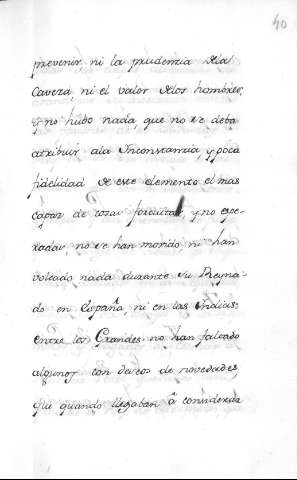 40
prevenir ni la prudencia dela
Caveza, ni el valor delos hombres,
y no hubo nada, que no se deba
atribuir ala Inconstancia, y poca
fidelidad de este elemento el mas
capaz de cosas y no espe-
radas, no se han movido ni han
volcado nada durante su Reyna-
do en España ni en las Indias:
entre los Grandes no han faltado
algunos con deseos de novedades,
que quando llegaban â considerar